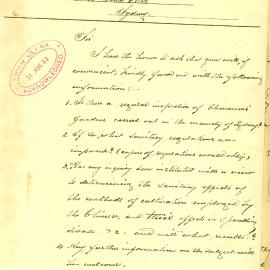 Sydney.
Sir,
I have the honor to ask that you will, if
convenient, kindly favor me with the following
information:-
1. Is there a regular inspection of Chinamen's
Gardens carried out in the vicinity of Sydney?
2. If so, what sanitary regulations are
imposed? (copies of regulations would oblige)
3. Has any inquiry been instituted with a view
to determining the sanitary effects of
the methods of cultivation employed by
the Chinese, and their effects in spreading
disease &c. and with what results?
4. Any further information on the subject will
be welcome.
ACKNOWLEDGED